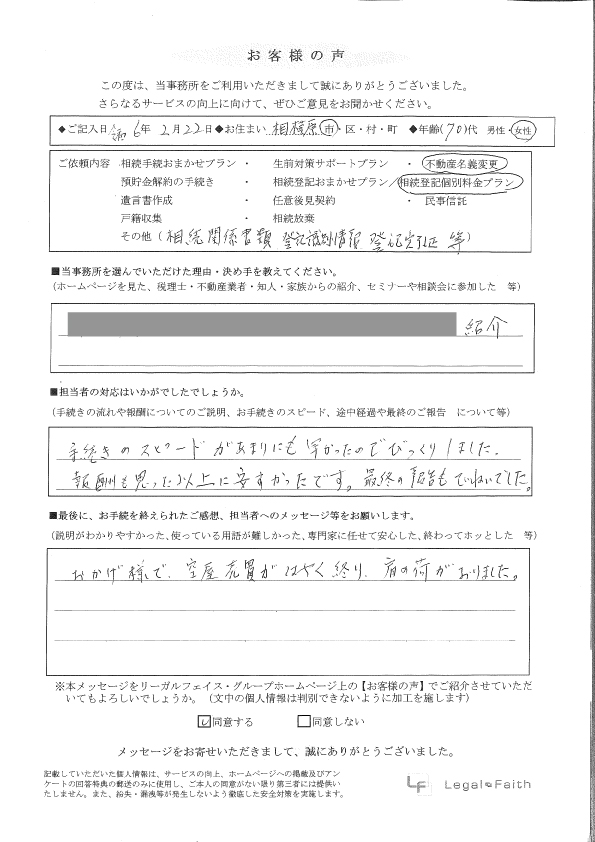 お客様の声
この度は、当事務所をご利用いただきまして誠にありがとうございました。
さらなるサービスの向上に向けて、ぜひご意見をお聞かせください。
◆ご記入日 令和6年2月22日◆お住まい 相模原 市・区・村・町 ◆年齢(70)代 男性・女性
ご依頼内容 相続手続おまかせプラン ・ 生前対策サポートプラン ・ 不動産名義変更
預貯金解約の手続き ・ 相続登記おまかせプラン/相続登記個別料金プラン
遺言書作成 ・ 任意後見契約 ・ 民事信託
戸籍収集 ・ 相続放棄
その他(相続関係書類 登記識別情報 登記 等)
■当事務所を選んでいただけた理由・決め手を教えてください。
(ホームページを見た、税理士・不動産業者・知人・家族からの紹介、セミナーや相談会に参加した 等)
紹介
■担当者の対応はいかがでしたでしょうか。
(手続きの流れや報酬についてのご説明、お手続きのスピード、途中経過や最終のご報告 について等)
手続きのスピードがあまりにも早かったのでびっくりしました。
報酬も思った以上に安すかったです。最終の報告もていねいでした。
■最後に、お手続を終えられたご感想、担当者へのメッセージ等をお願いします。
(説明がわかりやすかった、使っている用語が難しかった、専門家に任せて安心した、終わってホッとした 等)
おかげ様で、空屋売買がはやく終り、肩の荷がおりました。
※本メッセージをリーガルフェイス・グループホームページ上の【お客様の声】でご紹介させていただ
いてもよろしいでしょうか。(文中の個人情報は判別できないように加工を施します)
同意する 同意しない
メッセージをお寄せいただきまして、誠にありがとうございました。
記載していただいた個人情報は、サービスの向上、ホームページへの掲載及びアン
ケートの回答特典の郵送のみに使用し、ご本人の同意がない限り第三者には提供い
たしません。また、紛失・漏洩等が発生しないよう徹底した安全対策を実施します。
LF Legal Faith